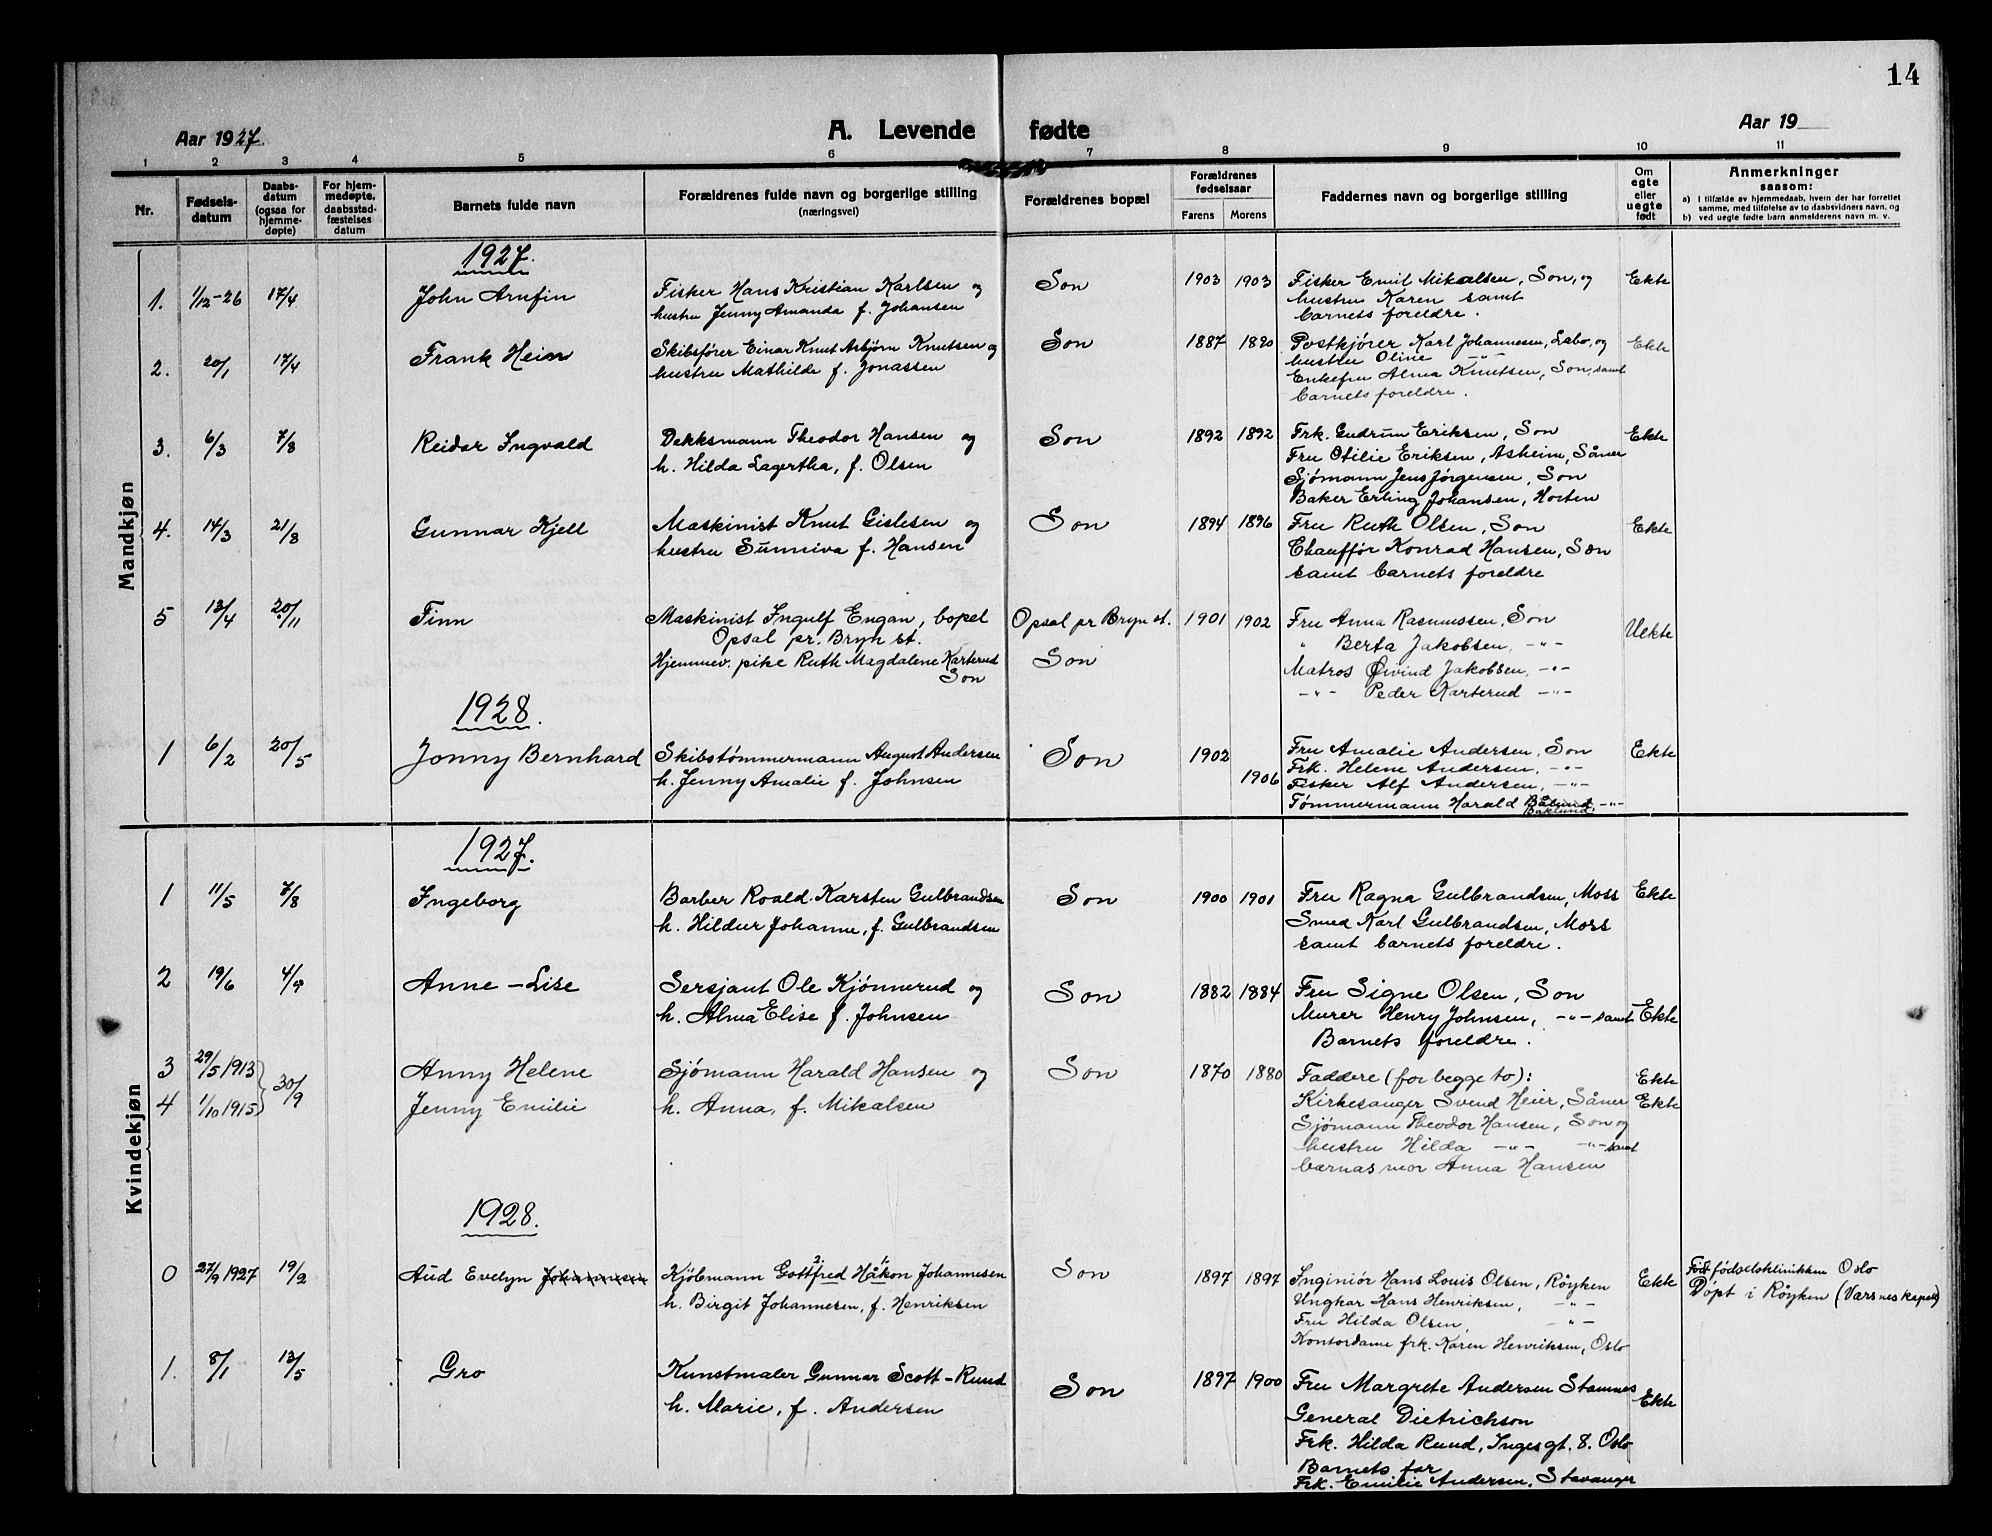 14
Aar 1927.
A. Levende fødte
Aar 19
1 2 3 4 5 6 7 8 9 10 11
Nr.
Fødsels-
datum
Daabs-
datum
(ogsaa for
hjemme-
døpte)
For hjem-
medøpte,
daabsstad-
fæstelses
datum
Barnets fulde navn
Forældrenes fulde navn og borgerlige stilling
(næringsvei)
Forældrenes bopæl
Forældrenes
fødselsaar
Farens Morens
Faddernes navn og borgerlige stilling
Om
egte
eller
uegte
født
Anmerkninger
saasom:
a) I tilfælde av hjemmedaab, hvern der har forrettet
samme, med tilføielse av to daabsvidners navn, og
b) ved uegte fødte barn anmelderens navn m. v.
Mandkjøn
1927.
1. 1/12-26 17/4 John Arnfin
Fisker Hans Kristian Karlsen og
hustru Jenny Amanda f. Johansen
Son 1903 1903
Fisker Emil Mikalsen, Son, og
hustru Karen samt
barnets foreldre.
Ekte
2. 20/1 17/4 Frank Heim
Skibsfører Einar Knut Asbjørn Knutsen og
hustru Mathilde f. Jonassen
Son 1887 1890
Postkjører Karl Johannesen, Labo, og
hustru Oline -"-
Enkefru Alma Knutsen, Son, samt
barnets foreldre.
Ekte
3. 6/3 7/8 Reidar Ingvald
Dekksmann Theodor Hansen og
h. Hilda Lagertha, f. Olsen
Son 1892 1892
Frk. Gudrun Eriksen, Son
Fru Otilie Eriksen, Asheim, Såner
Sjømann Jens Jørgensen, Son
Baker Erling Johansen, Horten
Ekte
4. 14/3 21/8 Gunnar Kjell
Maskinist Knut Gislesen og
hustru Sunniva f. Hansen
Son 1894 1896
Fru Ruth Olsen, Son
Chauffør Konrad Hansen, Son
samt barnets foreldre
Ekte
5 13/4 20/11 Finn
Maskinist Ingulf Engan, bopel
Opsal pr. Bryn st.
Hjemmev. pike Ruth Magdalene Karterud
Son
Opsal pr Bryn st.
Son
1901 1902
Fru Anna Rasmussen, Son
" Berta Jakobsen, -"-
Matros Øivind Jakobsen, -"-
-"- Peder Karterud -"-
Uekte
1928.
1 6/2 20/5 Jonny Bernhard
Skibstømmermann August Andersen
h. Jenny Amalie f. Johnsen
Son 1902 1906
Fru Amalie Andersen, Son
Frk. Helene Andersen, -"-
Fisker Alf Andersen, -"-
Tømmermann Harald Bålund -"-
Baklund
Ekte
Kvindekjøn
1927.
1 11/5 7/8 Ingeborg
Barber Roald Karsten Gulbrandsen
h. Hildur Johanne, f. Gulbrandsen
Son 1900 1901
Fru Ragna Gulbrandsen, Moss
Smed Karl Gulbrandsen, Moss
samt barnets foreldre.
Ekte
2 19/6 4/9 Anne-Lise
Sersjant Ole Kjønnerud og
h. Alma Elise f. Johnsen
Son 1882 1884
Fru Signe Olsen, Son
Murer Henry Johnsen, -"- samt
Barnets foreldre.
Ekte
3 29/5 1913 30/9 Anny Helene
4 1/10 1915 Jenny Emilie
Sjømann Harald Hansen og
h. Anna, f. Mikalsen
Son 1870 1880
Faddere (for begge to):
Kirkesanger Svend Heier, Såner
Sjømann Theodor Hansen, Son og
hustru Hilda -"- -"- samt
barnas mor Anna Hansen
Ekte
Ekte
1928.
0 27/9 1927 19/2 Aud Evelyn Johannesen
Kjøbmann Gottfred Håkon Johannesen
h. Birgit Johannesen, f. Henriksen
Son 1897 1897
Inginiør Hans Louis Olsen, Røyken
Ungkar Hans Henriksen, -"-
Fru Hilda Olsen, -"-
Kontordame frk. Karen Henriksen, Oslo
Ekte
Født fødselsklinikken Oslo
Døpt i Røyken (Værsneskapell)
1. 8/1 13/5 Gro
Kunstmaler Gunnar Scott-Ruud
h. Marie, f. Andersen
Son 1897 1900
Fru Margrete Andersen Stamnes
General Dietrichson
Frk. Hilda Ruud, Inges gt. 8. Oslo
Barnets far
Frk. Emilie Andersen, Stavanger
Ekte